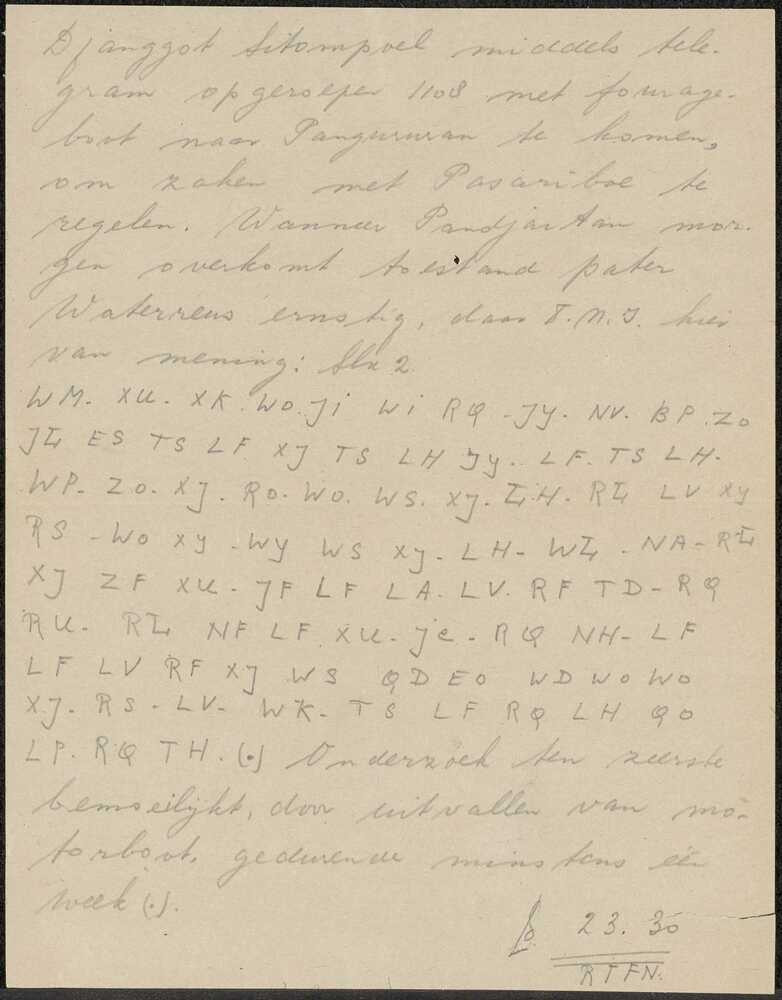 Djanggot Sitompoel middels tele-
gram opgeroepen 1108 met fourage-
boot naar Pangururan te komen,
om zaken met Pasariboe te
regelen. Wanneer Pandjaitan mor-
gen overkomt toestand pater
Waterreus ernstig, daar T.N.I. hier
van mening:
WM. XU. XK. WO. Ji Wi RQ - JY. NV. BP. ZO
ES TS LF XJ TS LH JY. LF. TS LH.
WP. ZO. XJ. RO. WO. WS. XJ. LV XY
RS - WO XY - WY WS XJ. LH - NA -
XJ ZF XU. JF LF LA. LV. RF TD - RQ
RU. NF LF. XU. JC. RQ NH - LF
LF LV RF XJ WS QD EO WD WO WO
XJ. RS. LV. WK. TS LF RQ LH QO
LP. RQ TH. (.) Onderzoek ten zeerste
bemoeilijkt, door uitvallen van mo-
torboot, gedurende minstens één
week (.).
23.30
RTFN.